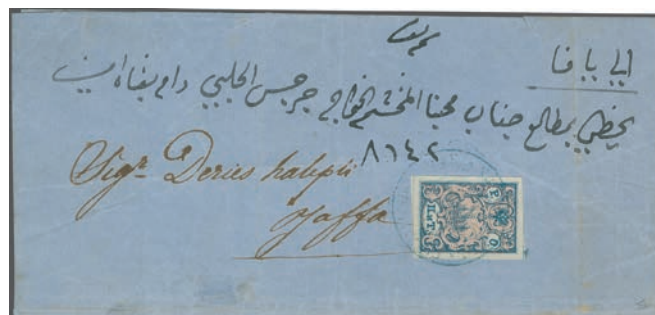 الى يافا
يحظى بمطالع جناب محبنا المحتشم الخواجه جرجس الحلبي دام بقاه امين
٨٦٤٢
Sigr. Deries halepli
Yaffa
Р.О.П.и Т.